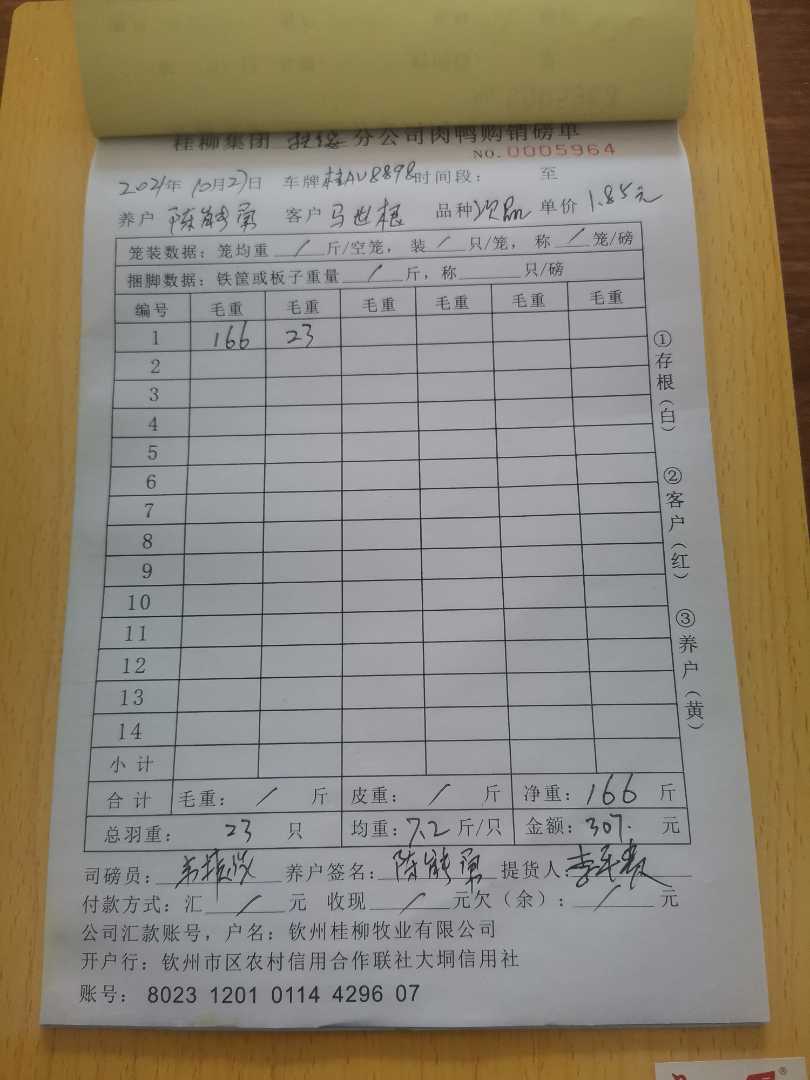 桂柳集团 分公司肉鸭购销磅单
NO.0005964
2021年 10月27日 车牌桂AV8898时间段： 至
养户 陈能勇 客户 马世根 品种次品 单价 1.85元
笼装数据：笼均重 / 斤/空笼，装 / 只/笼，称 / 笼/磅
捆脚数据：铁筐或板子重量 / 斤，称 只/磅
编号 毛重 毛重 毛重 毛重 毛重 毛重
1 166 23
2
3
4
5
6
7
8
9
10
11
12
13
14
小计
合计 毛重： / 斤 皮重： / 斤 净重：166 斤
总羽重： 23 只 均重：7.2 斤/只 金额：307. 元
司磅员： 养户签名：陈能勇 提货人：
付款方式：汇 / 元 收现 / 元欠（余）： / 元
公司汇款账号，户名：钦州桂柳牧业有限公司
开户行：钦州市区农村信用合作联社大垌信用社
账号：8023 1201 0114 4296 07
①存根（白）
②客户（红）
③养户（黄）